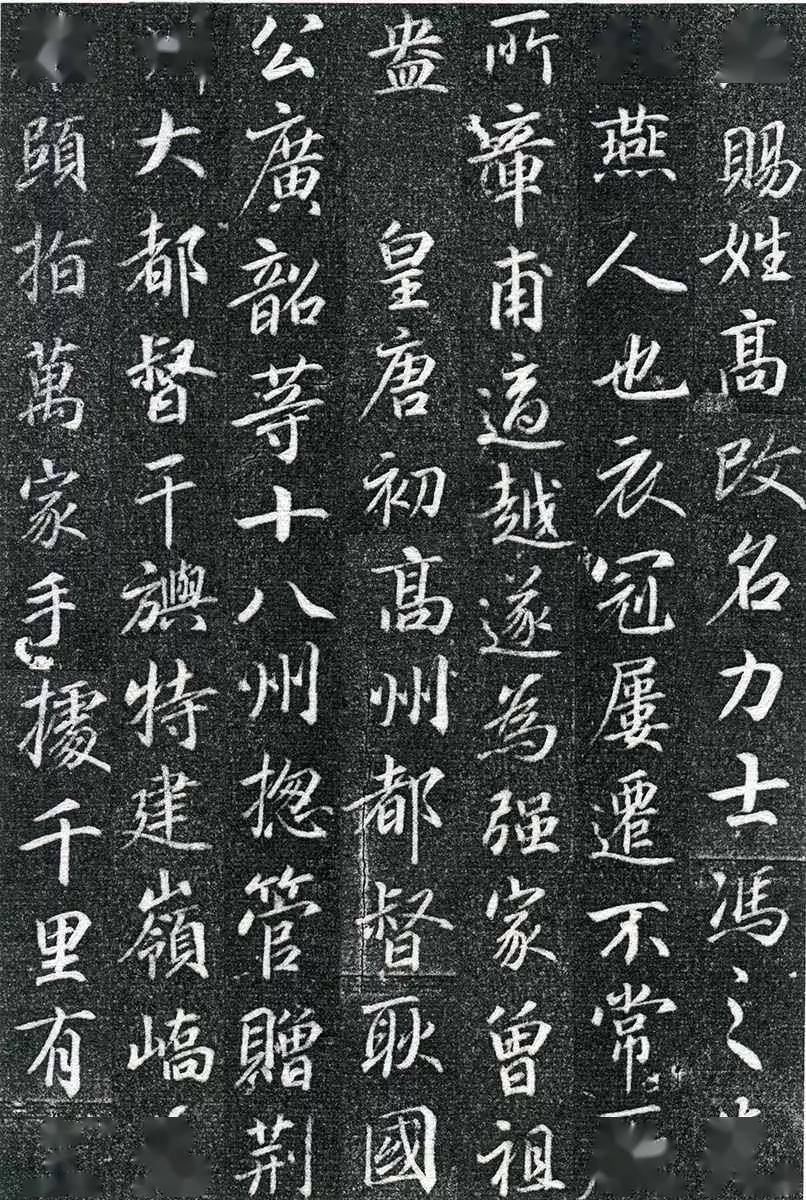 賜姓高改名力士馮之
燕人也衣冠屢遷不常
所章甫適越遂為强家曾祖
盎 皇唐初高州都督耿國
公廣韶等十八州揔管贈荆
大都督干旟特建嶺嶠
頤指萬家手據千里有